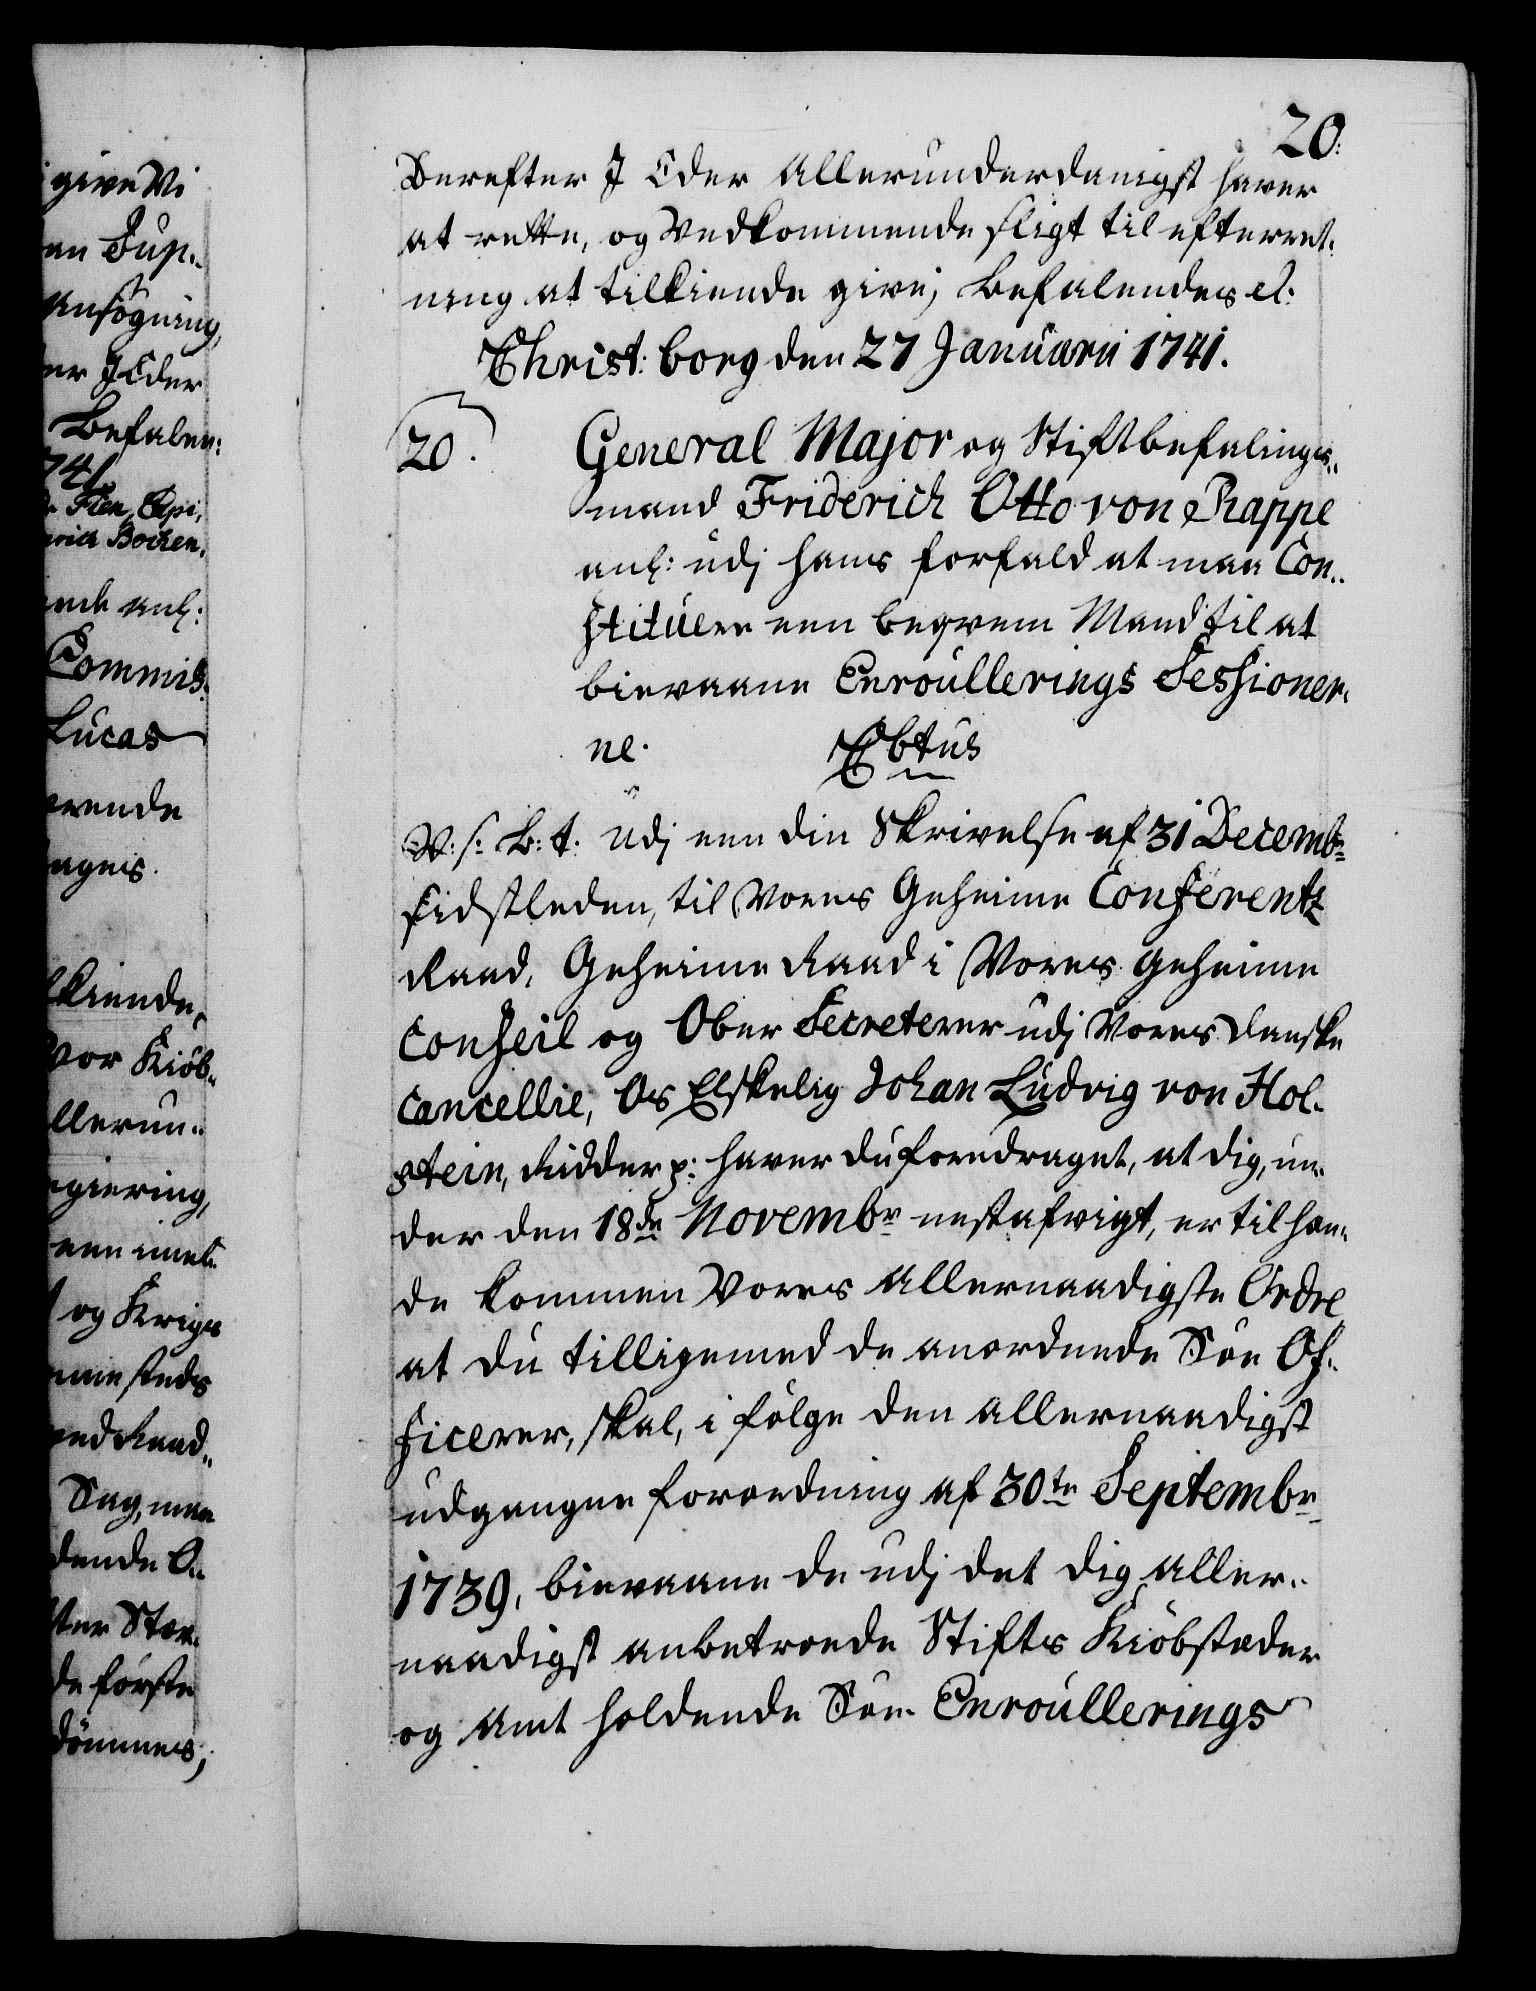 20.
Derefter I Eder Allerunderdanigst haver
at rette, og Vedkommende sligt til efterret-
ning at tilkiende give; Befalendes etc:
Christ: borg den 27 Januarii 1741.
20. General Major og Stiftbefalings-
mand Friderich Otto von Rappe
anl: udj hans forfald at maa Con-
stituere een beqvem Mand til at
bievaane Enroullerings Sessioner-
ne. Ebtus
V: s: B: t: Udj een din Skrivelse af 31 Decembr
sidstleden, til Vores Geheime Conferentz
Raad, Geheime Raad i Vores Geheime
Conseil og Ober Secreterer udj Vores Danske
Cancellie, Os Elskelig Johan Ludvig von Hol-
stein, Ridder p: haver du foredraget, at dig, un-
der den 18de Novembr nestafvigt, er tilhen-
de kommen Vores Allernaadigste Ordre
at du tilligemed de anordnede Søe Of-
ficerer, skal, i følge den allernaadigst
udgangne forordning af 30te Septembr
1739, bievaane de udj det dig aller-
naadigst anbetroede Stifts Kiøbstæder
og Amt holdende Søe- Enroullerings
give Vi
en Sup-
Ansøgning,
er I Eder
Befalen:
741
anl:
Commis-
Lucas
rende
kiende,
vor Kiøb-
llerun-
giering,
og Krigs
steds
ed Raad-
Sag, maa
dende O-
de første
dømmes;